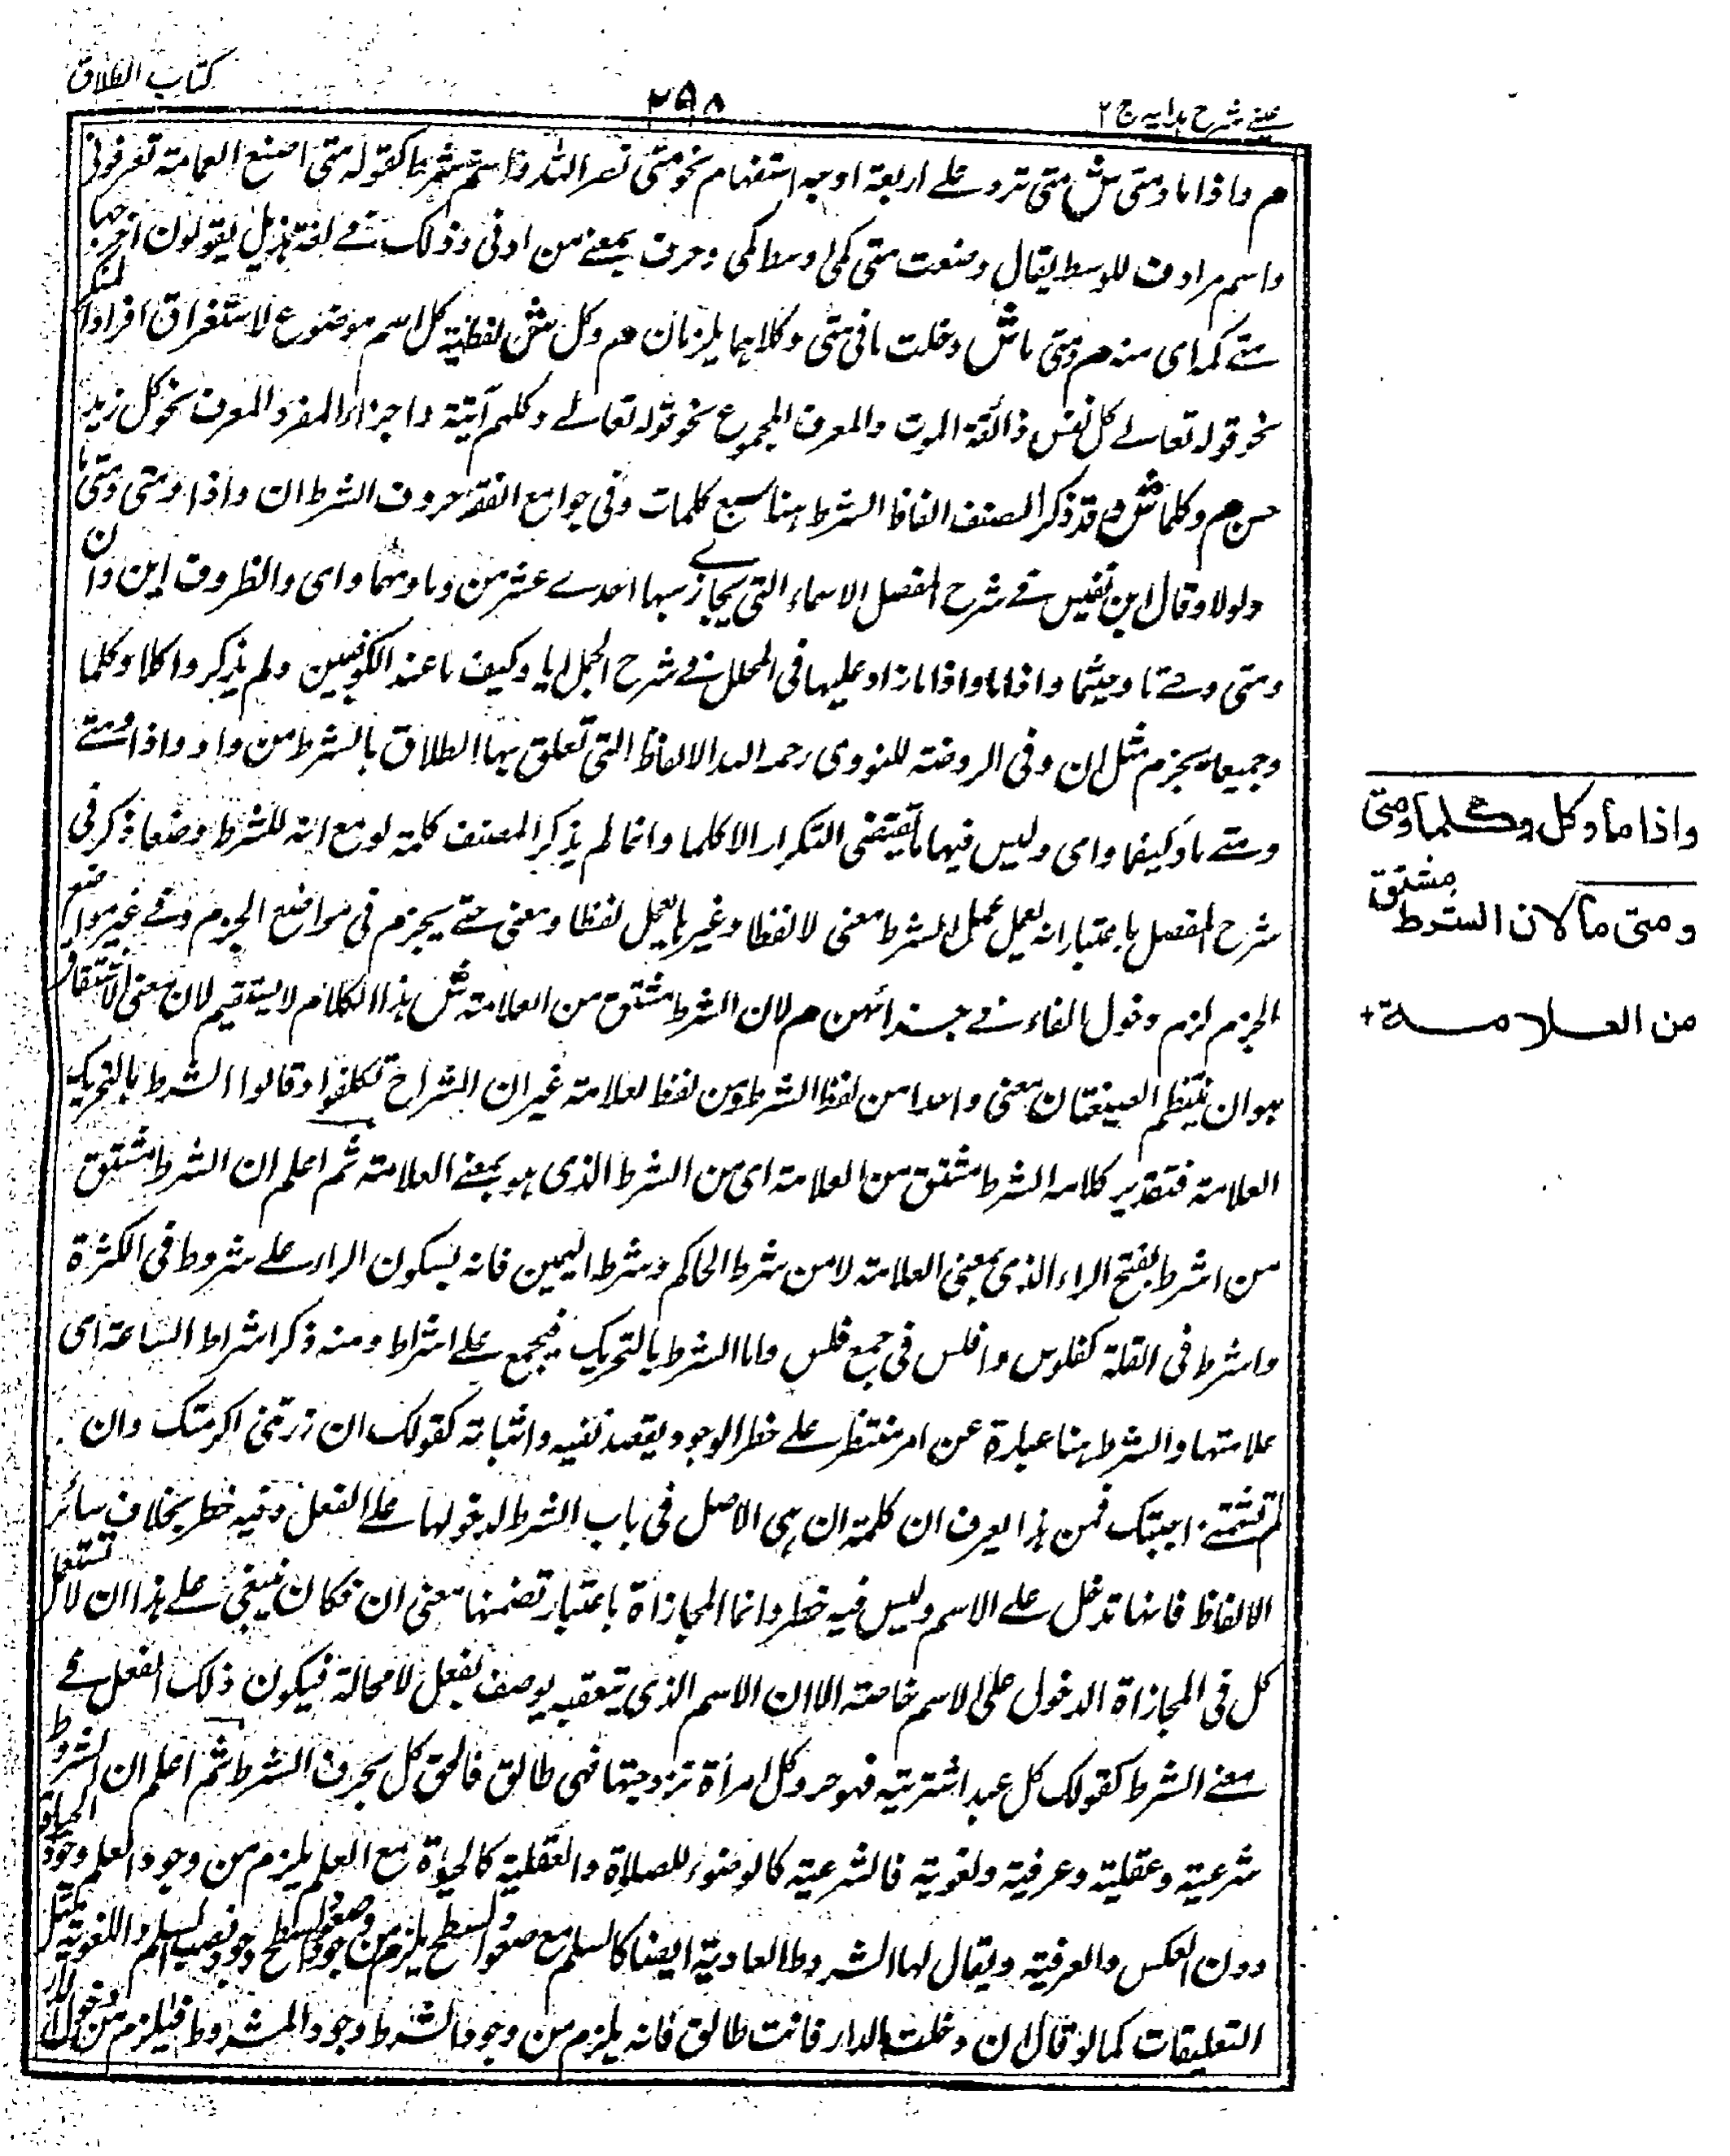 عينى شرح هدايه ج ٢
٢٩٨
كتاب الطلاق
م واذا ما ومتى ش متى ترد على اربعة اوجه استفهام نحو متى نصر الله واسم شرط كقوله متى اضع العمامة تعرفونى
واسم مرادف للوسط يقال وضعت متى كمى اى وسط كمى وحرف بمعنى من او فى وذلك فى لغة هذيل يقولون اخرجها
متى كمه اى منه م ومتى ما ش دخلت ما فى متى وكلاهما يلزمان م وكل ش لفظية كل اسم موضوع لاستغراق افراد المنكر
نحو قوله تعالى كل نفس ذائقة الموت والمعرف المجموع نحو قوله تعالى وكلهم آتية واجزاء المفرد المعرف نحو كل زيد
حسن م وكلما ش وقد ذكر المصنف الفاظ الشرط هنا سبع كلمات وفى جوامع الفقه حروف الشرط ان واذا ومتى ومتى ما
ولولا وقال ابن نفيس فى شرح المفصل الاسماء التى يجازى بها احدى عشر من وما ومهما واى والظروف اين وان
ومتى ومتى ما وحيثما واذ ما واذا ما زاد عليها فى المحلل فى شرح الجمل ايا وكيف ما عند الكوفيين ولم يذكروا كلا وكلما
وجميعا يجزم مثل ان وفى الروضة للنووى رحمه الله الالفاظ التى تعلق بها الطلاق بالشرط من وا و واذا ومتى
ومتى ما وكيفما واى وليس فيها ما يقتضى التكرار الا كلما وانما لم يذكر المصنف كلمة لو مع انه للشرط وضعا ذكر فى
شرح المفصل باعتبار انه يعمل عمل الشرط معنى لا لفظا وغيرها يعمل لفظا ومعنى حتى يجزم فى مواضع الجزم وفى غير مواضع
الجزم لزم دخول الفاء فى جزائهن م لان الشرط مشتق من العلامة ش هذا الكلام لا يستقيم لان معنى الاشتقاق
هو ان ينتظم الصيغتان معنى واحدا من لفظ الشرط ومن لفظ لعلامة غير ان الشراح تكلفوا وقالوا الشرط بالتحريك
العلامة فتقدير كلامه الشرط مشتق من العلامة اى من الشرط الذى هو بمعنى العلامة ثم اعلم ان الشرط مشتق
من اشرط بفتح الراء الذى بمعنى العلامة لا من شرط الحاكم وشرط اليمين فانه بسكون الراء على شروط فى الكثرة
واشرط فى القلة كفلوس وافلس فى جمع فلس واما الشرط بالتحريك فيجمع على اشراط ومنه ذكر اشراط الساعة اى
علامتها والشرط هنا عبارة عن امر منتظر على خطر الوجود يقصد نفيه واثباته كقولك ان زرتنى اكرمتك وان
لم تشتمنى اجبتك فمن هذا يعرف ان كلمة ان هى الاصل فى باب الشرط لدخولها على الفعل وفيه خطر بخلاف سائر
الالفاظ فانها تدخل على الاسم وليس فيه خطر وانما المجازاة باعتبار تضمنها معنى ان فكان ينبغى على هذا ان لا تستعمل
كل فى المجازاة الدخول على الاسم خاصة الا ان الاسم الذى يتعقبه يوصف بفعل لا محالة فيكون ذلك الفعل فى
معنى الشرط كقولك كل عبد اشتريته فهو حر وكل امرأة تزوجتها فهى طالق فالحق كل بحرف الشرط ثم اعلم ان الشروط
شرعية وعقلية وعرفية ولغوية فالشرعية كالوضوء للصلاة والعقلية كالحياة مع العلم يلزم من وجود العلم وجود الحياة
دون العكس والعرفية ويقال لها الشروط العادية ايضا كالسلم مع صعود السطح يلزم من وجود صعود السطح وجود نصب السلم واللغوية مثل
التعليقات كما لو قال ان دخلت الدار فانت طالق فانه يلزم من وجود الشرط وجود المشروط فيلزم من دخول الدار
واذا ما وكل وكلما ومتى
ومتى ما لان الشرط مشتق
من العلامة +